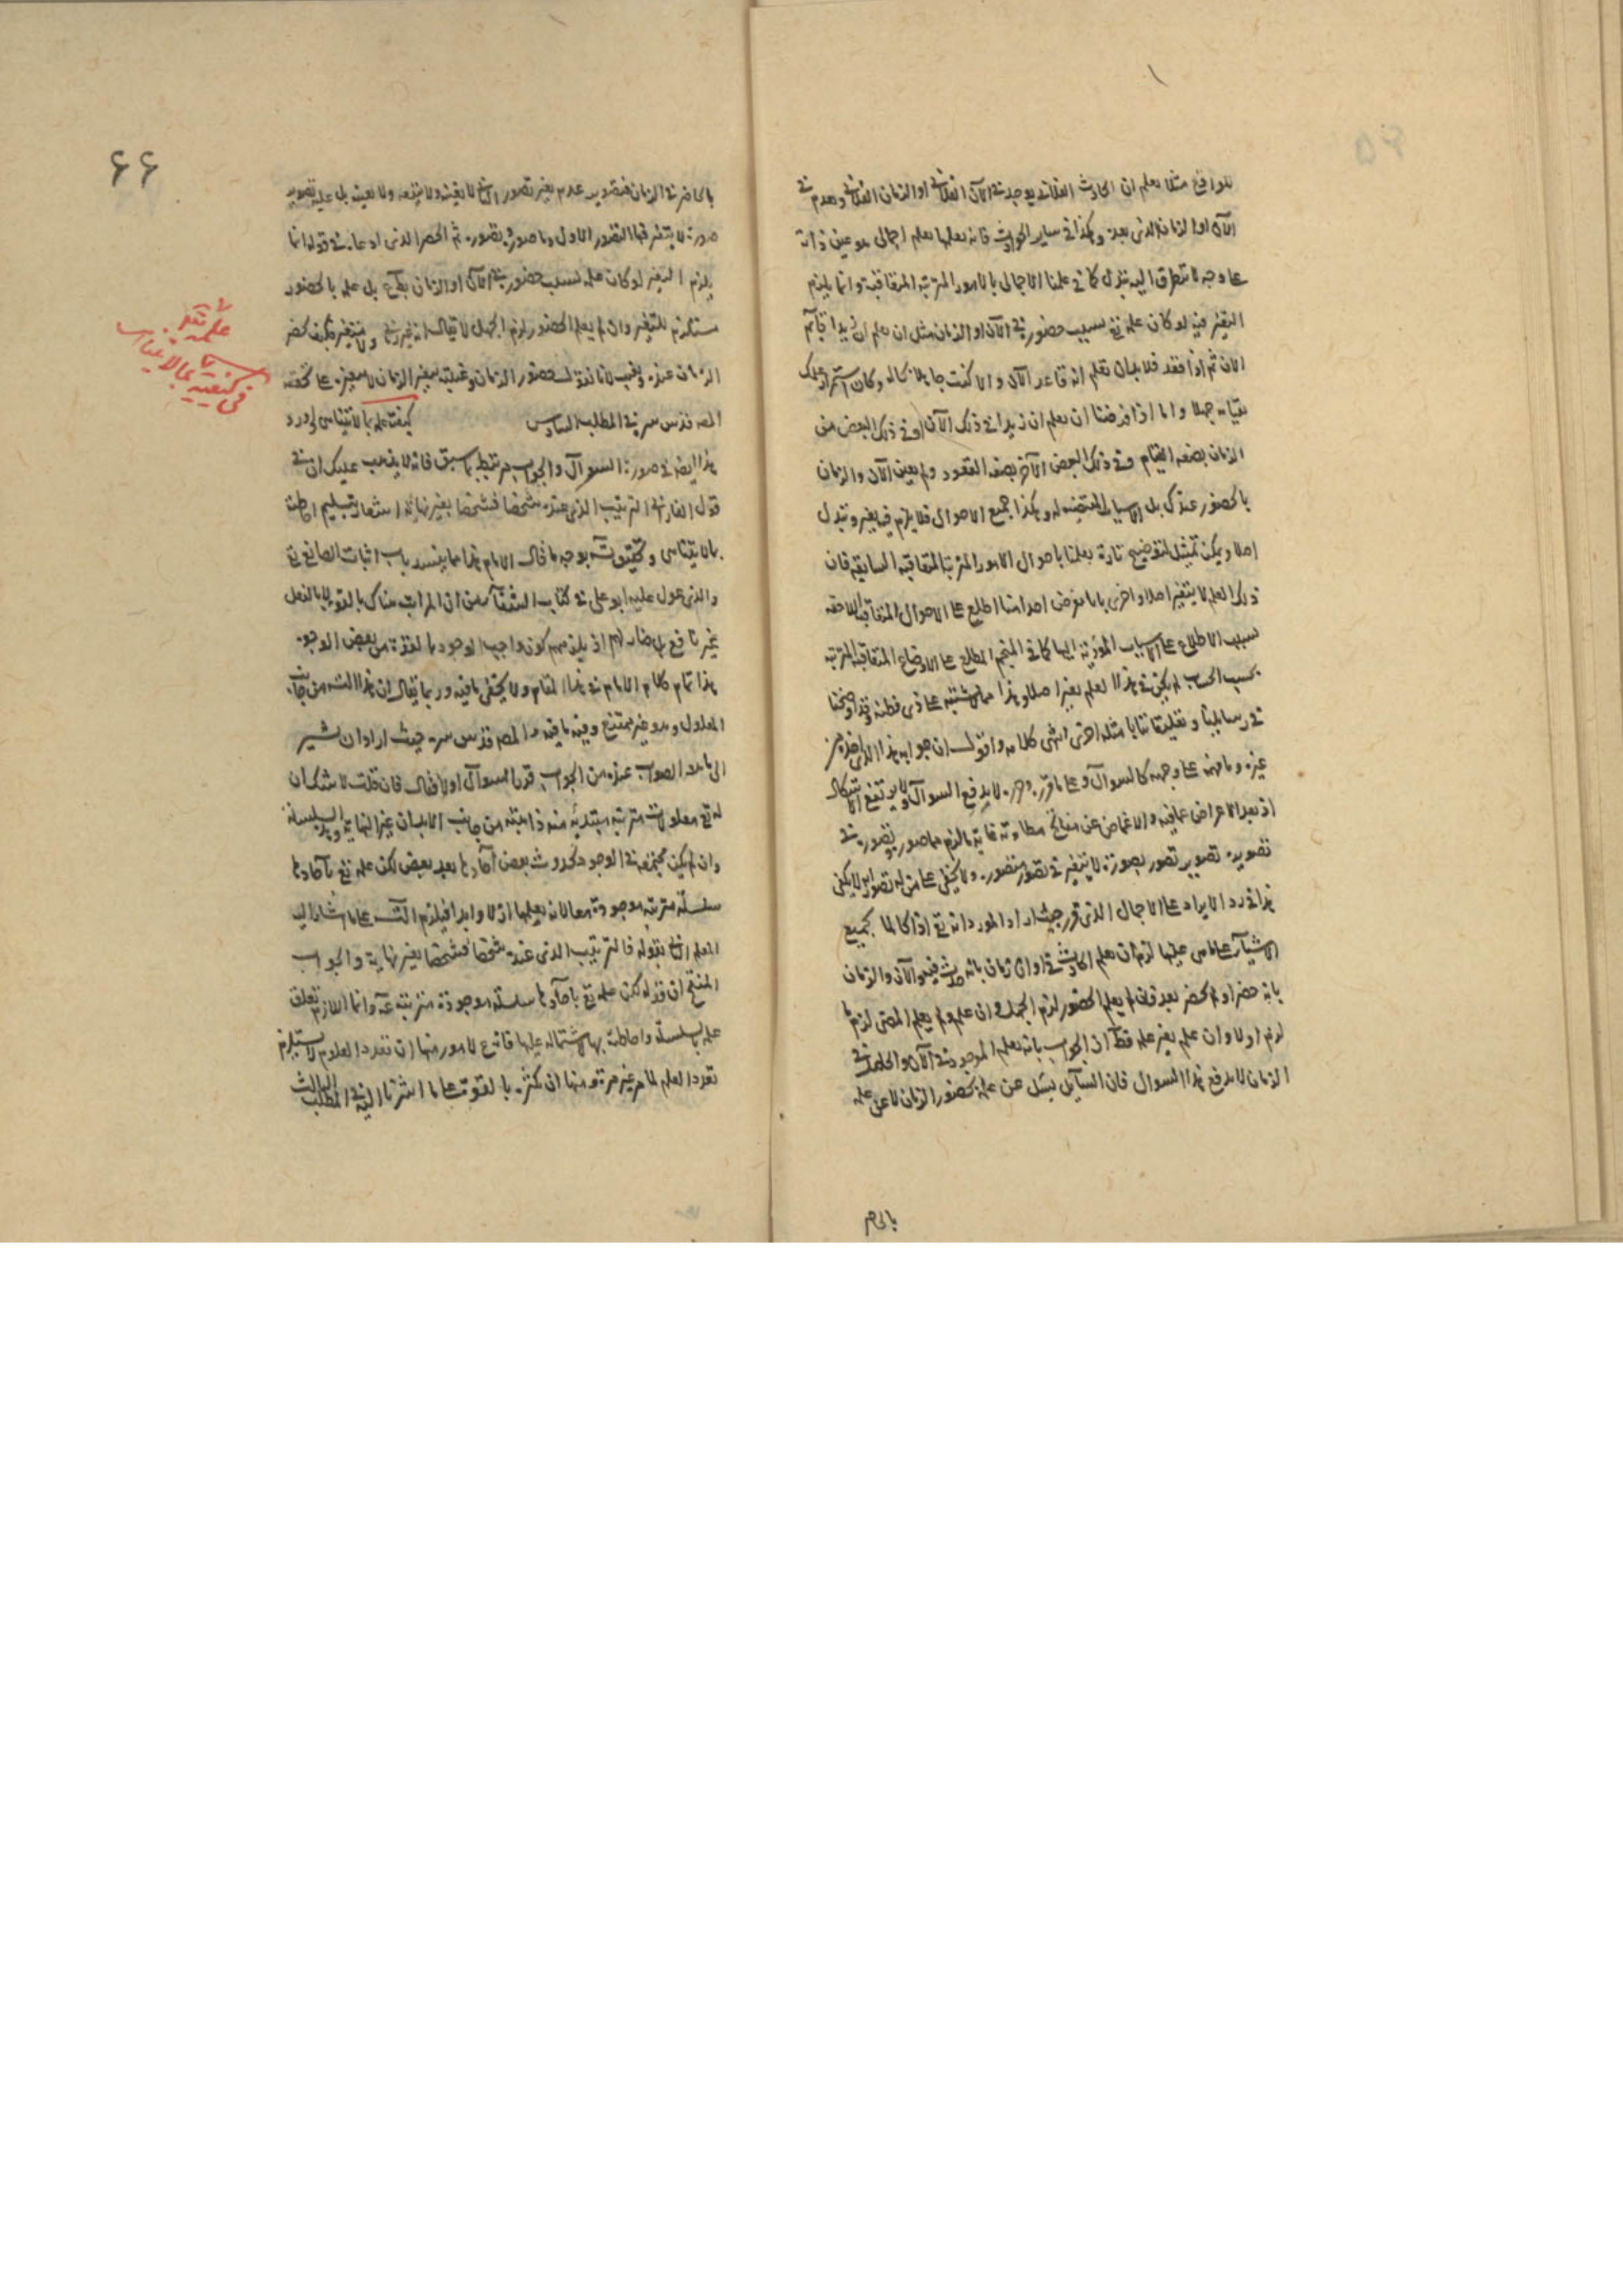 للواقع مثلا يعلم ان الحادث الفلاني يوجد في الآن الفلاني او الزمان الفلاني ويعدم في
الآن او الزمان الذي بعده وهكذا في ساير الحوادث فانه يعلمها بعلم اجمالي هو عين ذاته
على وجه لا يتطرق اليه تبدل كما في علمنا الاجمالي بالامور المترتبة المتعاقبة وانما يلزم
التغير فيه لو كان علمه تع بسبب حضوره في الآن او الزمان مثل ان يعلم ان زيدا قائم
الان ثم اذا قعد فلا بد ان تعلم انه قاعد الآن والا كنت جاهلا بحاله وكان استمرار علمك
بقيامه جهلا واما اذا فرضنا ان يعلم ان زيدا في ذلك الآن او في ذلك البعض من
الزمان بصفة القيام وفي ذلك البعض الآخر بصفة القعود ولم يعين الآن والزمان
بالحضور عندك بل الاسباب المقتضية له وهكذا جميع الاحوال فلا يلزم فيه تغير وتبدل
اصلا ويمكن تمثيل لتوضيح تارة بعلمنا باحوال الامور المترتبة المتعاقبة السابقة فان
ذلك العلم لا يتغير اصلا واخرى بانا نفرض احدا منا اطلع على الاحوال المتعاقبة اللاحقة
بسبب الاطلاع على الاسباب المؤدية اليها كما في المنجم المطلع على الاوضاع المتعاقبة المترتبة
بحسب الحساب لم يكن في هذا العلم تغير اصلا وهذا مما لا يشتبه على ذي فطنة وقد اوضحنا
في رسايلنا وتعليقاتنا بامثلة اخرى انتهى كلامه واقول ان جوابه هذا الذي اخذه من
غيره على وجهه كالسوال وعلى ما قرره لا يدفع السوال ولا يرتفع الاشكال
اذ بعد الاعراض عما فيه والاغماض عن غاية ما لزم مما صوره وتصوره في
تصويره تصوير تصور بصورة لا يتغير في تصوره متصوره ولا يخفى على من له تصور انه لا يكفي
هذا في رد الايراد على الاجمال الذي قرر حيث اراد المورد انه تع اذا كان عالما بجميع
الاشياء على ما هي عليها لزم ان يعلم الحادث في اوان زمان بانه حدث فيه والآن والزمان
بانه حضر او لم يحضر بعد فان لم يعلم الحضور لزم الجهل وان علم ولم يعلم المضى لزم ما
لزم اولا وان علم تغير علمه قطعا اذ الجواب بانه يعلم الموجود في الآن والحادث في
الزمان لا يدفع هذا السوال فان السائل يسئل عن علمه بحضور الزمان لا عن علمه
بالحاضر
٦٦
بالحاضر في الزمان فتصوير عدم تغير تصور الخ لا يغنيه ولا ينفعه ولا يعينه بل عليه تصوير
صورة لا يتغير فيها التصور الاول وما صوره وتصوره ثم الحصر الذي ادعاه في قوله انما
يلزم التغير لو كان علمه بسبب حضوره في الآن او الزمان بل علمه بالحضور
مستلزم للتغير وان لم يعلم الحضور لزم الجهل لا يقال انه غير زماني ولا متغير فكيف يحضر
الزمان عنده ويغيب لانا نقول حضور الزمان وغيبته بتغير الزمان لا بتغيره على ما حققه
المص قدس سره في المطلب السادس كيفية علمه بما لا يتناهى لو ورد
هذا ايضا في صورة السوال والجواب مرتبط بما سبق فانه لا يذهب عليك ان في
قول الفارابي الترتيب الذي عنده شخصا فشخصا بغير نهاية اشعارا بتسليم احاطته
بما لا يتناهى وتحقيقه بوجه ما قال الامام هذا مما يفسد باب اثبات الصانع تع
والذي عول عليه ابو علي في كتاب الشفاء من ان المراتب هناك بالقوة لا بالفعل
غير نافع بل ضار لهم اذ يلزمهم كون واجب الوجود بالقوة من بعض الوجوه
هذا تمام كلام الامام في هذا المقام ولا يخفى ما فيه وربما يقال ان هذا التس من جانب
المعلول وهو غير ممتنع وفيه ما فيه والمص قدس سره حيث اراد ان يشير
الى ما هو الصواب عنده من الجواب قرر السوال اولا فقال فان قلت لا شك ان
له تع معلولات مترتبة مبتدئة منه ذاهبة من جانب الابد الى غير النهاية وهذه السلسلة
وان لم يكن مجتمعة في الوجود لحدوث بعض آحادها بعد بعض لكن علمه تع بآحادها
سلسلة مترتبة موجودة معا لانه يعلمها ازلا وابدا فيلزم التس على ما اشار اليه
المعلم الثاني بقوله فالترتيب الذي عنده شخصا فشخصا بغير نهاية والجواب
المنقح ان قوله لكن علمه تع بآحادها سلسلة موجودة مترتبة مم وانما اللازم تعلق
علمه بالسلسلة واحاطته بها واشتماله عليها فانه تع لامور منها ان تعدد المعلوم لا يستلزم
تعدد العلم لما مر غير مرة ومنها ان تكثره بالقوة على ما اشرنا اليه في المطلب الثالث
علمه تعالى
في كيفية
بما لا يتناهى